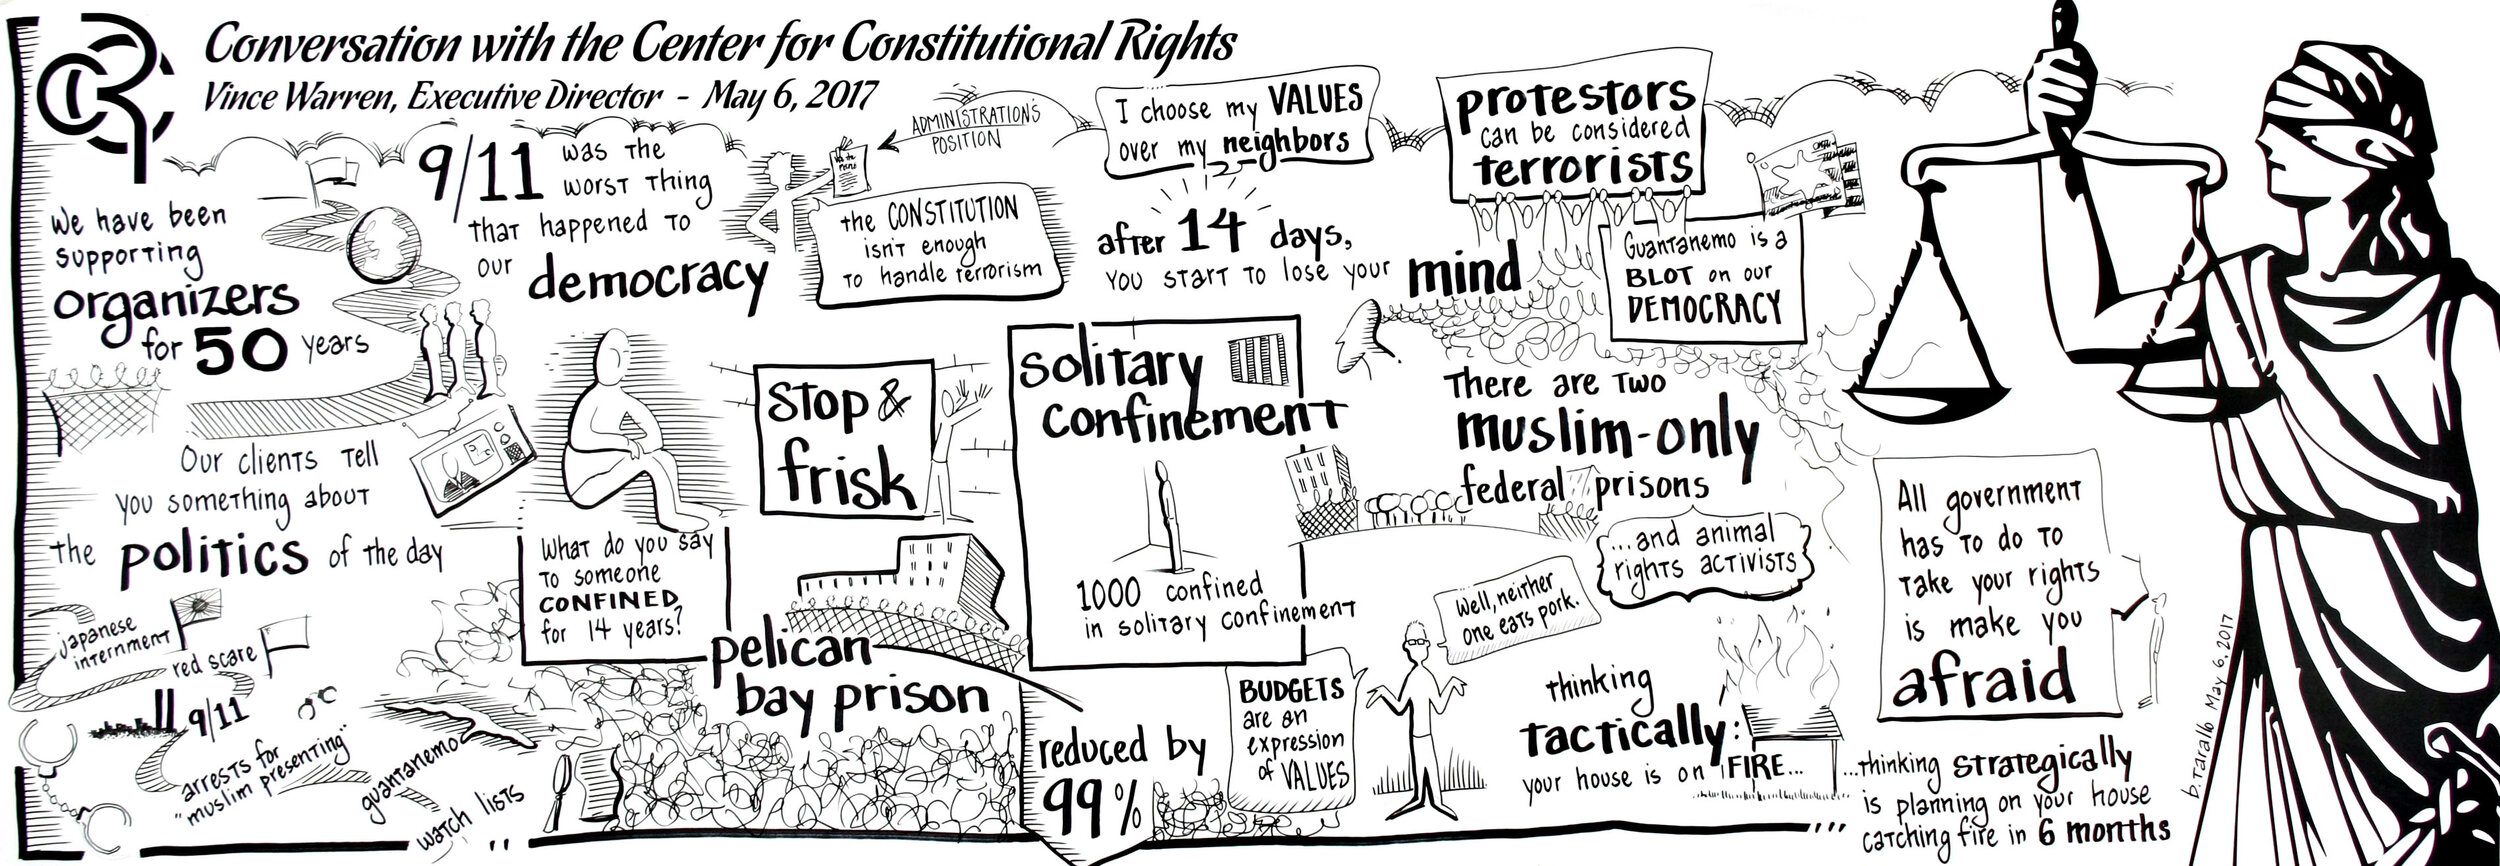 CCR
Conversation with the Center for Constitutional Rights
Vince Warren, Executive Director - May 6, 2017
We have been
supporting
organizers
for 50 years
9/11 was the
worst thing
that happened to
our democracy
ADMINISTRATION'S
POSITION
the CONSTITUTION
isn't enough
to handle terrorism
I choose my VALUES
over my neighbors
after 14 days,
you start to lose your mind
protestors
can be considered
terrorists
Guantanemo is a
BLOT on our
DEMOCRACY
Our clients tell
you something about
the politics of the day
What do you say
to someone
CONFINED
for 14 years?
stop &
frisk
solitary
confinement
1000 confined
in solitary confinement
pelican
bay prison
reduced by
99%
There are two
muslim-only
federal prisons
...and animal
rights activists
Well, neither
one eats pork.
BUDGETS
are an
expression
of VALUES
thinking
tactically:
your house is on FIRE...
...thinking strategically
is planning on your house
catching fire in 6 months
All government
has to do to
take your rights
is make you
afraid
japanese
internment
red scare
9/11
arrests for
"muslim presenting"
guantanemo
watch lists
b. Tarallo May 6, 2017